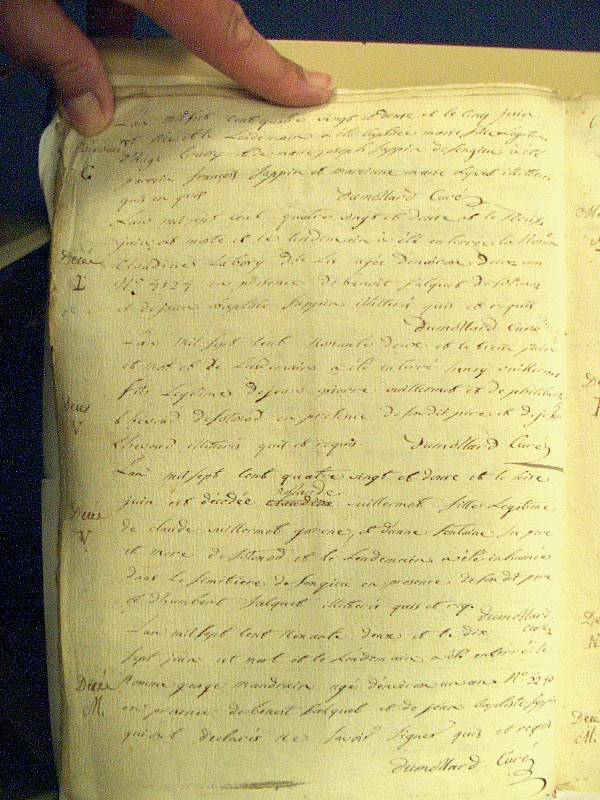 L'an mil sept cent quatre vingt et douze et le cinq juin
est née et le Lendemain a été baptisée marie fille legitime
et de marie joseph Suppin de Songieu a été
parrain françois Suppin et marraine marie illitteré
quis et requis Dumollard Curé
C
L'an mil sept cent quatre vingt et douze et le
juin est morte et le lendemain a été enterrée la nommée
Claudine Labory dite La agée d'environ deux ans
Decé
L
N° 4124 en présence de benoit Falquet de
et de jean baptiste Suppin illitterés quis et requis
Dumollard Curé
L'an mil sept cent nonante deux et le treize juin
est mort et le Lendemain a été enterré henry vuillermet
fils Legitime de jean pierre vuillermet et de philiberte
Decés
V
Chevrond de en presence de son dit pere et de jean
Chevrond illitterés quis et requis. Dumollard Curé
L'an mil sept cent quatre vingt et douze et le seize
juin est décédée claudine vuillermet fille Legitime
Decé
V
de claude vuillermet et d'anne fontaine ses pere
et mere de et le Lendemain a été inhumée
dans Le simitiere de Songieu en presence de son dit pere
et d'humbert Falquet illitterés quis et req. Dumollard
curé
L'an mil sept cent nonante deux et le dix
sept juin est mort et le Lendemain a été enterré le
Decé
M.
nomme george mandrain agé d'environ un an N° 5240
en presence de benoit Falquet et de jean baptiste Suppin
qui ont declarés ne savoir signer quis et requis
Dumollard Curé